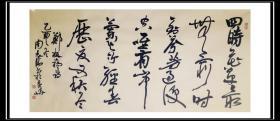 四時花草最
無窮時
到芬芳過便
空唯有山
中蘭與竹經春
歷夏又秋冬
鄭板橋詩